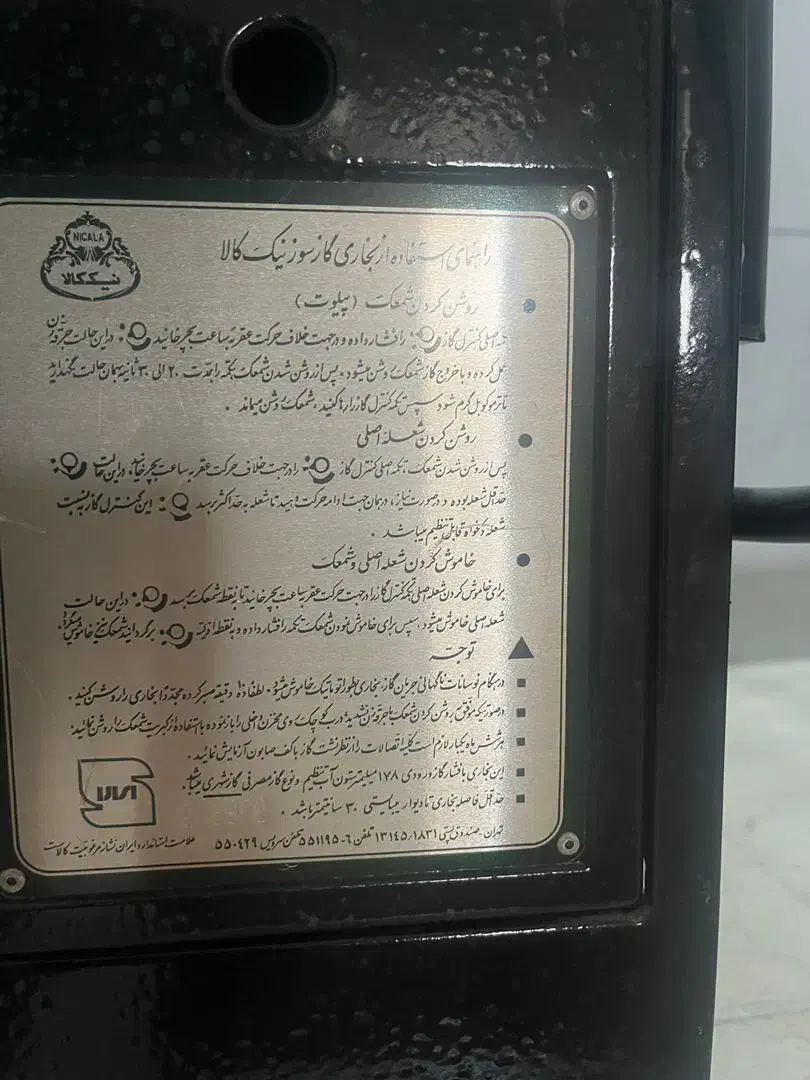 NICALA
نیک کالا
راهنمای استفاده از بخاری گازسوز نیک کالا
روشن کردن شمعک (پیلوت)
تکمه اصلی کنترل گاز را فشار داده و در جهت خلاف حرکت عقربه ساعت بچرخانید در این حالت جرقه زدن
عمل کرده و با خروج گاز شمعک روشن میشود. پس از روشن شدن شمعک تکمه را مدت ۲۰ الی ۳۰ ثانیه بهمان حالت نگهدارید
تا ترموکوبل گرم شود سپس تکمه کنترل گاز را رها کنید، شمعک روشن میماند.
روشن کردن شعله اصلی
پس از روشن شدن شمعک، تکمه اصلی کنترل گاز را در جهت خلاف حرکت عقربه ساعت بچرخانید، در این حالت
حداقل شعله بوده و در صورت نیاز، در همان جهت ادامه حرکت دهید تا شعله به حداکثر برسد این کنترل گاز به نسبت
شعله دلخواه قابل تنظیم میباشد.
خاموش کردن شعله اصلی و شمعک
برای خاموش کردن شعله اصلی تکمه کنترل گاز را در جهت حرکت عقربه ساعت بچرخانید تا به نقطه شمعک برسد در این حالت
شعله اصلی خاموش میشود، سپس برای خاموش نمودن شمعک تکمه را فشار داده و به نقطه اولیه برگردانید شمعک نیز خاموش میگردد.
توجه
در هنگام نوسانات ناگهانی جریان گاز، بخاری بطور اتوماتیک خاموش میشود. لطفاً ۵ دقیقه صبر کرده مجدداً بخاری را روشن کنید.
در صورتیکه موفق به روشن کردن شمعک با جرقه زن نشدید، درب کوچک روی مخزن داخلی را باز نموده با استفاده از کبریت شمعک را روشن نمائید.
هر شش ماه یکبار لازم است کلیه اتصالات را از نظر نشت گاز با کف صابون آزمایش نمائید.
این بخاری با فشار گاز ورودی ۱۷۸ میلیمتر ستون آب تنظیم و نوع گاز مصرفی گاز شهری میباشد.
حداقل فاصله بخاری تا دیوار میبایستی ۳۰ سانتیمتر باشد.
تهران صندوق پستی ۱۳۱۴۵/۱۸۳۱ تلفن ۶-۵۵۱۱۹۵ تلفن سرویس ۵۵۰۴۲۹
علامت استاندارد ایران نشانه مرغوبیت کالاست